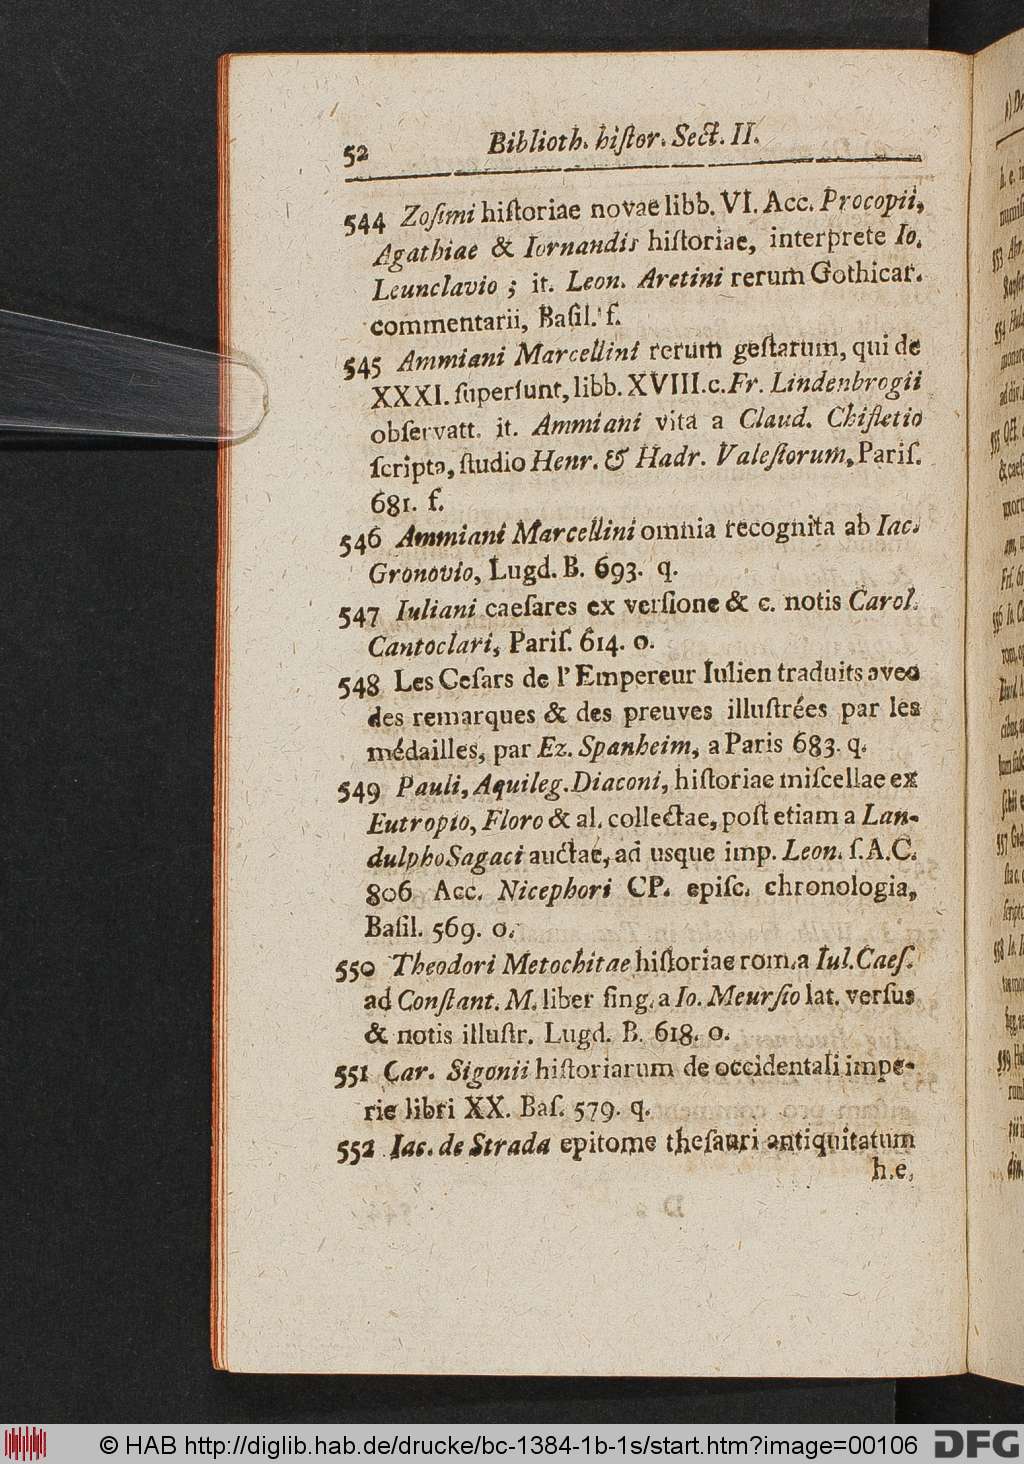 52 Biblioth. hiſtor. Sect. II.
544 Zoſimi hiſtoriae novae libb. VI. Acc. Procopii,
Agathiae & Iornandis hiſtoriae, interprete Io.
Leunclavio ; it. Leon. Aretini rerum Gothicar.
commentarii, Baſil. f.
545 Ammiani Marcellini rerum geſtarum, qui de
XXXI. ſuperſunt, libb. XVIII. c. Fr. Lindenbrogii
obſervatt. it. Ammiani vita a Claud. Chifletio
ſcripta, ſtudio Henr. & Hadr. Valeſiorum, Pariſ.
681. f.
546 Ammiani Marcellini omnia recognita ab Iac.
Gronovio, Lugd. B. 693. q.
547 Iuliani caeſares ex verſione & c. notis Carol.
Cantoclari, Pariſ. 614. o.
548 Les Ceſars de l' Empereur Iulien traduits avec
des remarques & des preuves illuſtrées par les
médailles, par Ez. Spanheim, a Paris 683. q.
549 Pauli, Aquileg. Diaconi, hiſtoriae miſcellae ex
Eutropio, Floro & al. collectae, poſt etiam a Lan-
dulpho Sagaci auctae, ad usque imp. Leon. ſ. A. C.
806 Acc. Nicephori CP. epiſc. chronologia,
Baſil. 569. o.
550 Theodori Metochitae hiſtoriae rom. a Iul. Caeſ.
ad Conſtant. M. liber ſing. a Io. Meurſio lat. verſus
& notis illuſtr. Lugd. B. 618. o.
551 Car. Sigonii hiſtoriarum de occidentali impe-
rio libri XX. Baſ. 579. q.
552 Iac. de Strada epitome theſauri antiquitatum
h. e.
© HAB http://diglib.hab.de/drucke/bc-1384-1b-1s/start.htm?image=00106 DFG